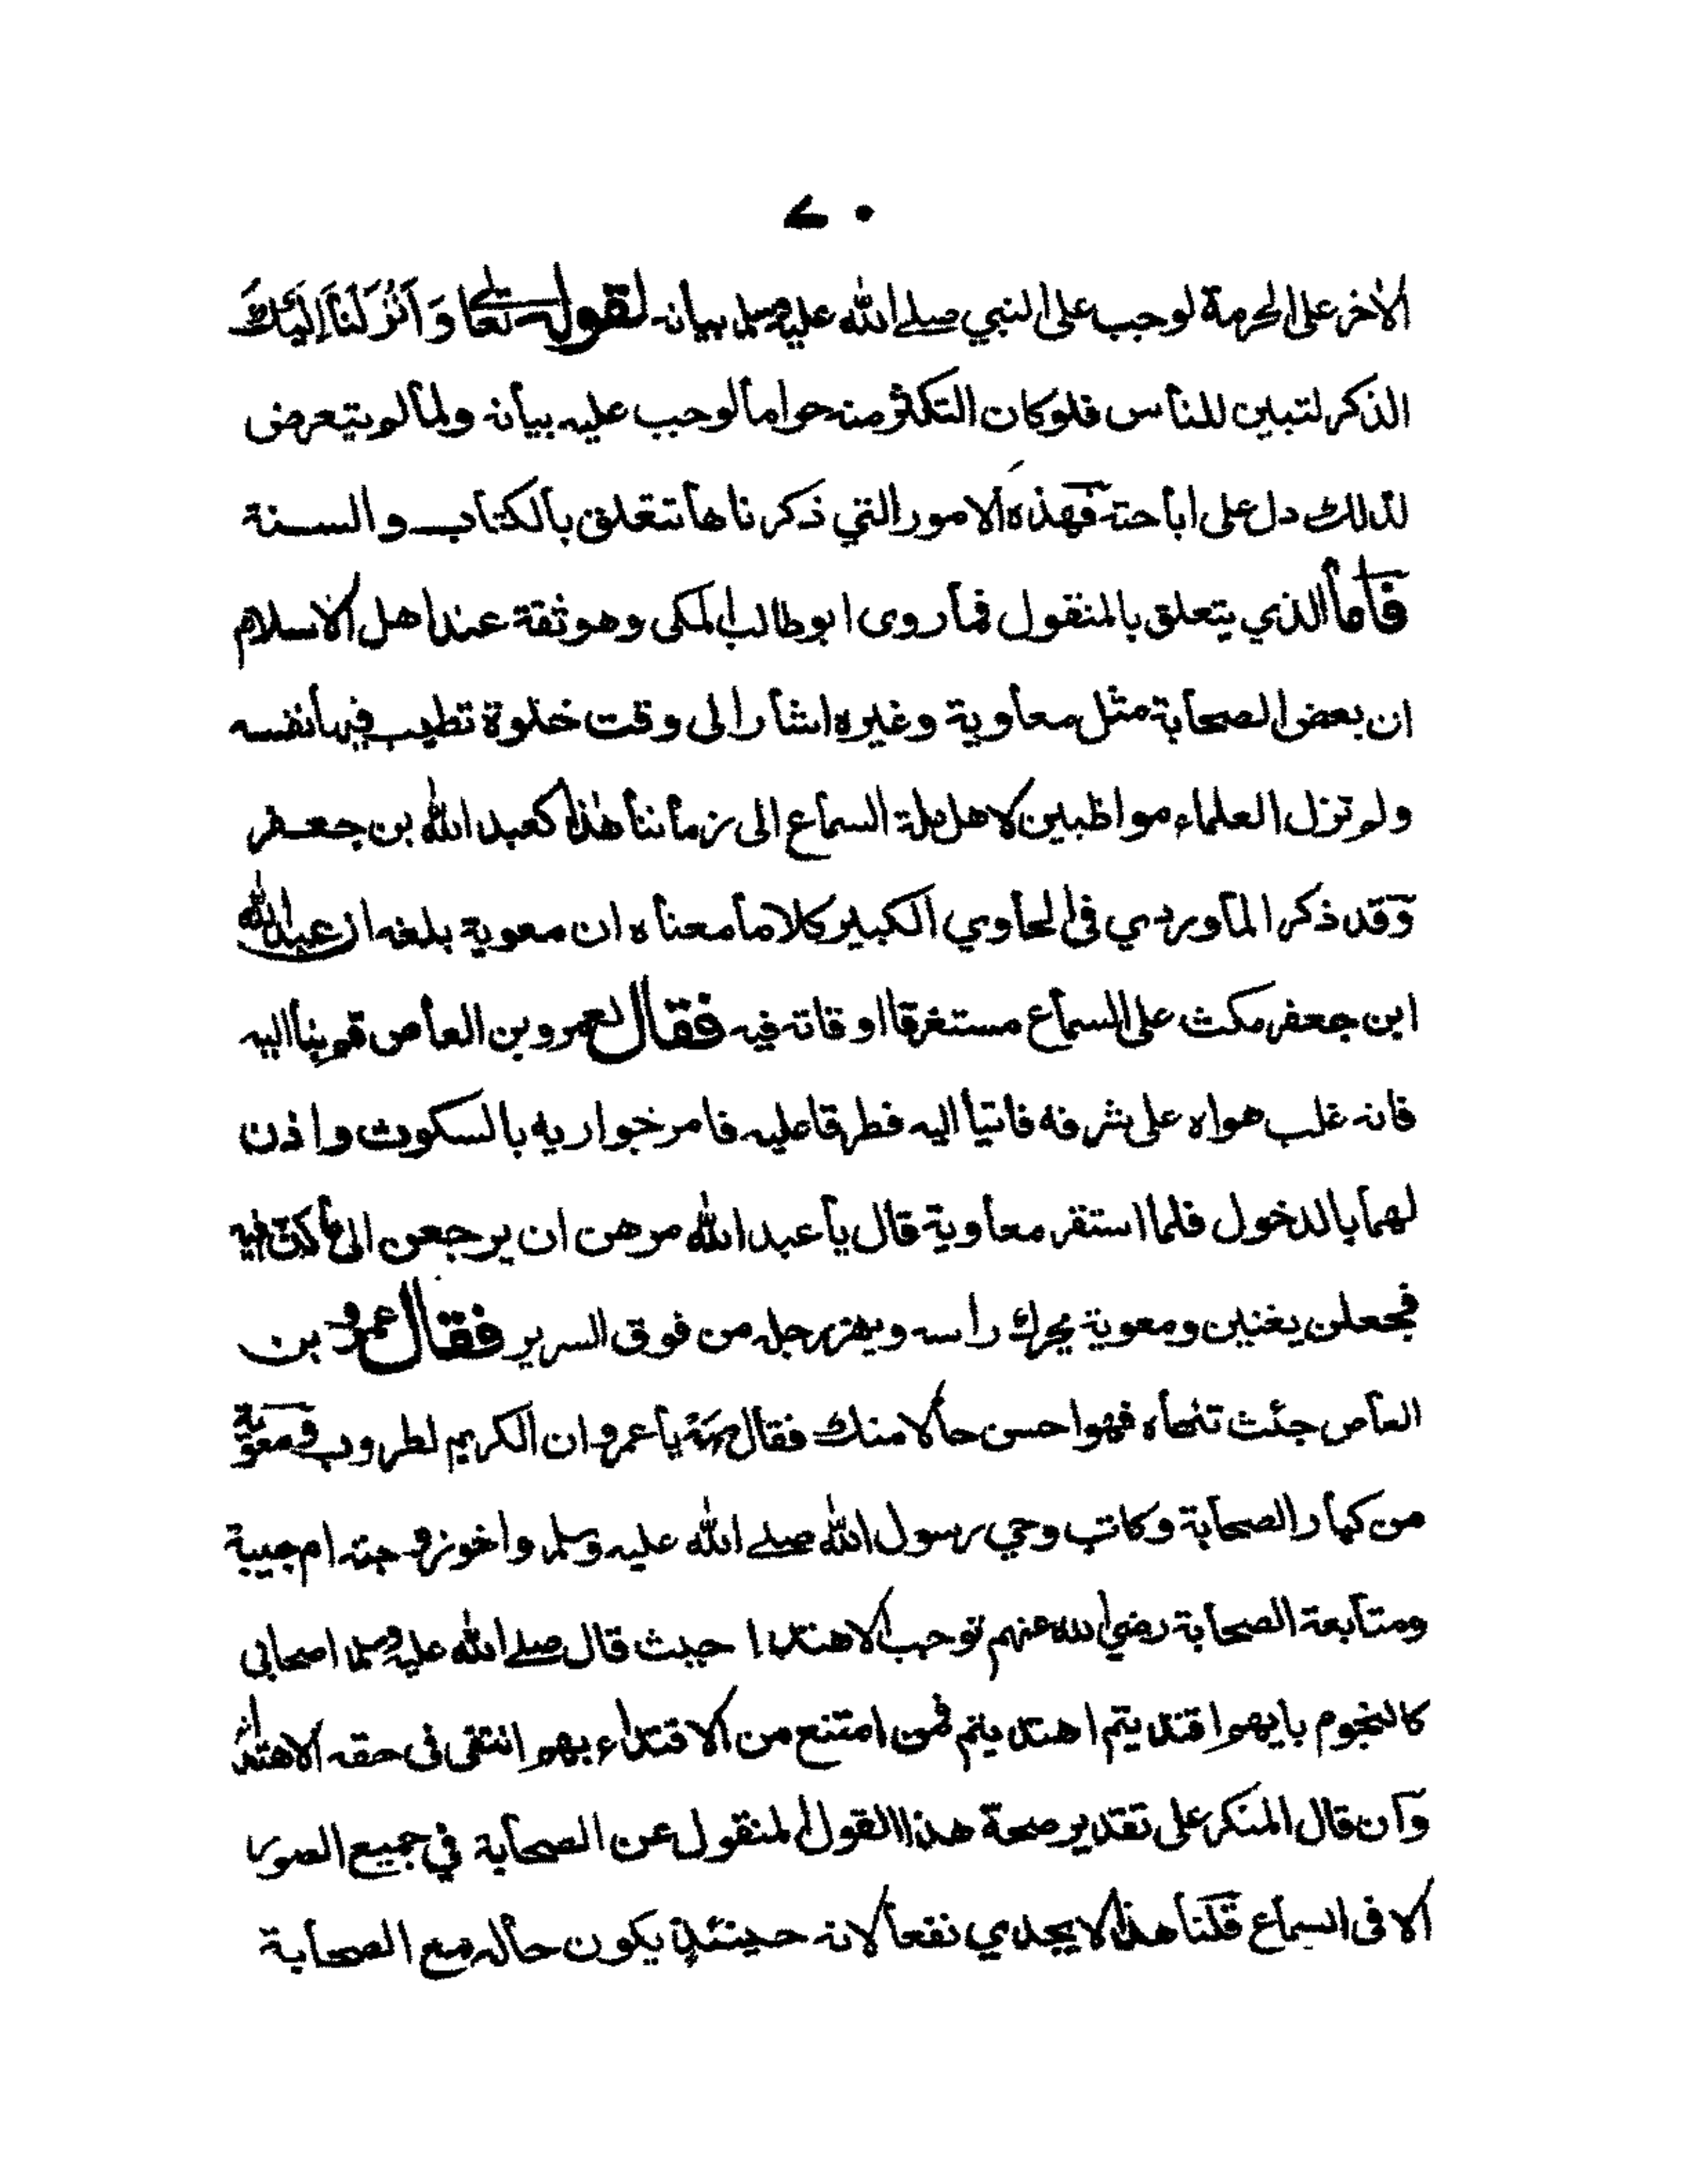 ٧٠
الاخر على الحرمة لوجب على النبي صلے الله عليه وسلم بيانه لقوله تعالے وَاَنْزَلْنَا اِلَيْكَ
الذكر لتبين للناس فلوكان التكثر منه حراما لوجب عليه بيانه ولما لم يتعرض
لذلك دل على اباحته فهذه الامور التي ذكرناها تتعلق بالكتاب والسنة
فاما الذي يتعلق بالمنقول فما روى ابو طالب المكى وهو ثقة عند اهل الاسلام
ان بعض الصحابة مثل معاوية وغيره اشار الى وقت خلوة تطيب فيها نفسه
ولم تزل العلماء مواظبين لاهل ملة السماع الى زماننا هٰذا كعبد الله بن جعفر
وقد ذكر الماوردي فى الحاوي الكبير كلاما معناه ان معوية بلغه ان عبد الله
ابن جعفر مكث على السماع مستغرقا اوقاته فيه فقال لعمرو بن العاص قم بنا اليه
فانه غلب هواه على شرفه فاتيا اليه فطرقا عليه فامر خواريه بالسكوت واذن
لهما بالدخول فلما استقر معاوية قال يا عبد الله مرهن ان يرجعن الى ما كن فيه
فجعلن يغنين ومعوية يحرك راسه ويهز رجله من فوق السرير فقال عمرو بن
العاص جئت تنهاه فهو احسن حالا منك فقال مَهْ يا عمرو ان الكريم لطروب ومعوية
من كبار الصحابة وكاتب وحي رسول الله صلے الله عليه وسلم واخو زوجته ام حبيبة
ومتابعة الصحابة رضي الله عنهم توجب الاهتدا حيث قال صلے الله عليه وسلم اصحابي
كالنجوم بايهم اقتديتم اهتديتم فمن امتنع من الاقتداء بهم انتقى فى حقه الاهتداء
وان قال المنكر على تقدير صحة هذا القول المنقول عن الصحابة في جميع الصور
الا فى السماع قلنا هذا لا يجدي نفعا لانه حينئذ يكون حاله مع الصحابة